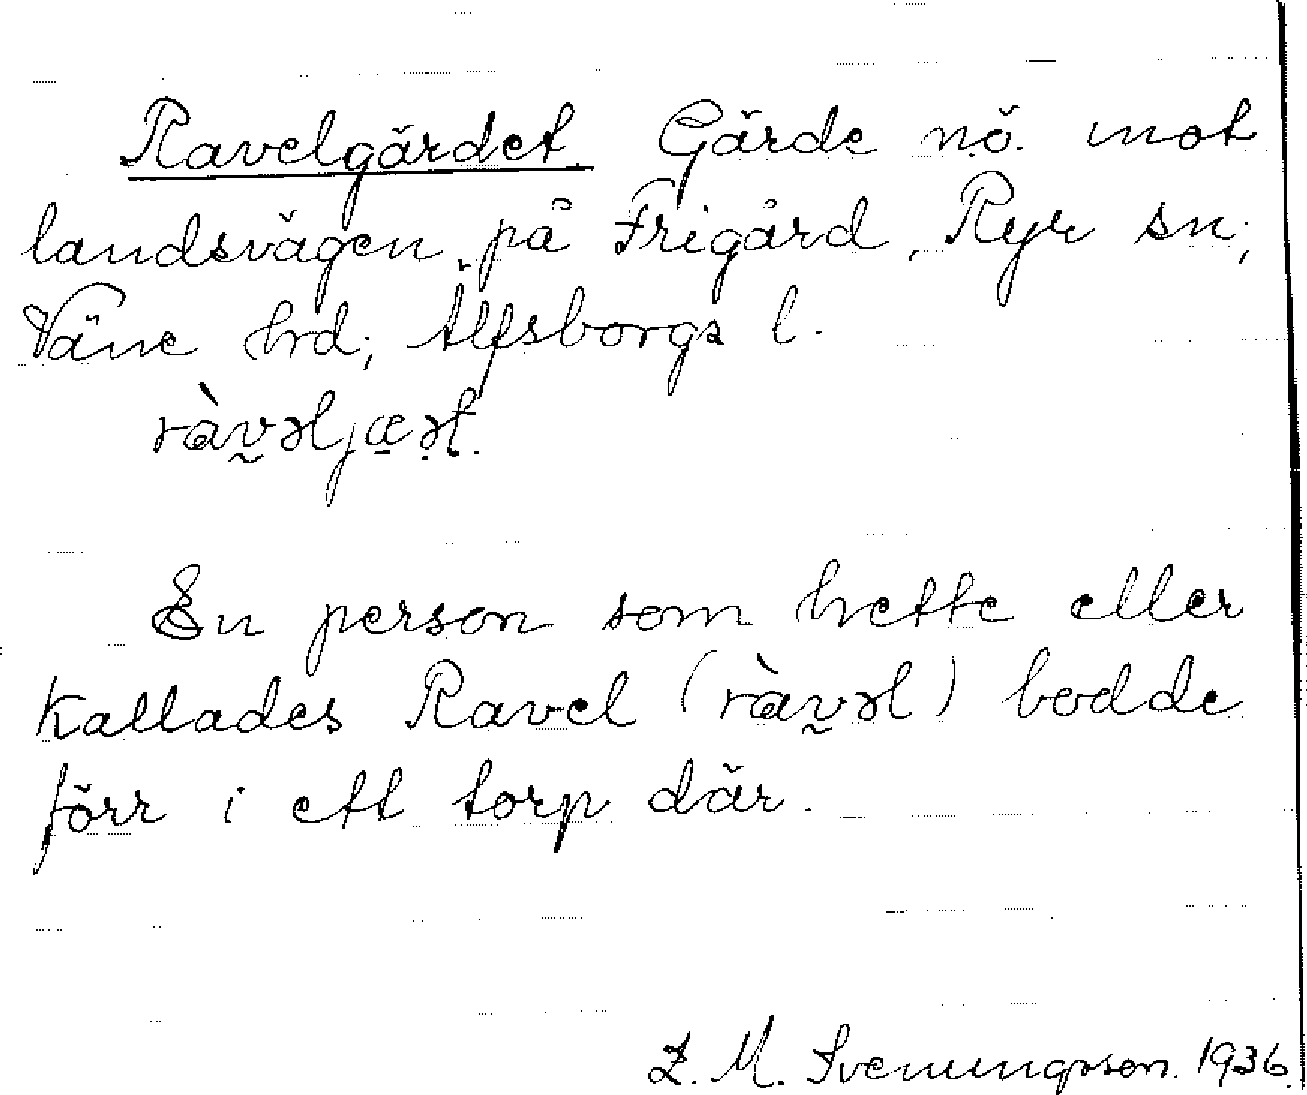 Ravelgärdet. Gärde n.ö. mot
landsvägen på Frigård, Ryr sn;
Väne hrd; Älfsborgs l.
ràv̰əljæ̱ə̣t.
En person som hette eller
kallades Ravel (ràv̰əl) bodde
förr i ett torp där.
Z. M. Svenungsson. 1936.